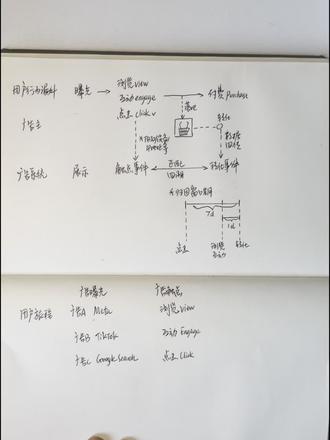 浏览 View
用户行为漏斗 曝光 → 互动 engage → 付费 Purchase
点击 Click
落地
转化
广告主
数据回传
广告系统 展示 触点事件 归因 回溯 转化事件
*归因窗口期
7d
1d
点击 浏览 互动 转化
广告曝光 广告触点
用户旅程 广告A Meta 浏览 View
广告B TikTok 互动 Engage
广告C Google Search 点击 Click